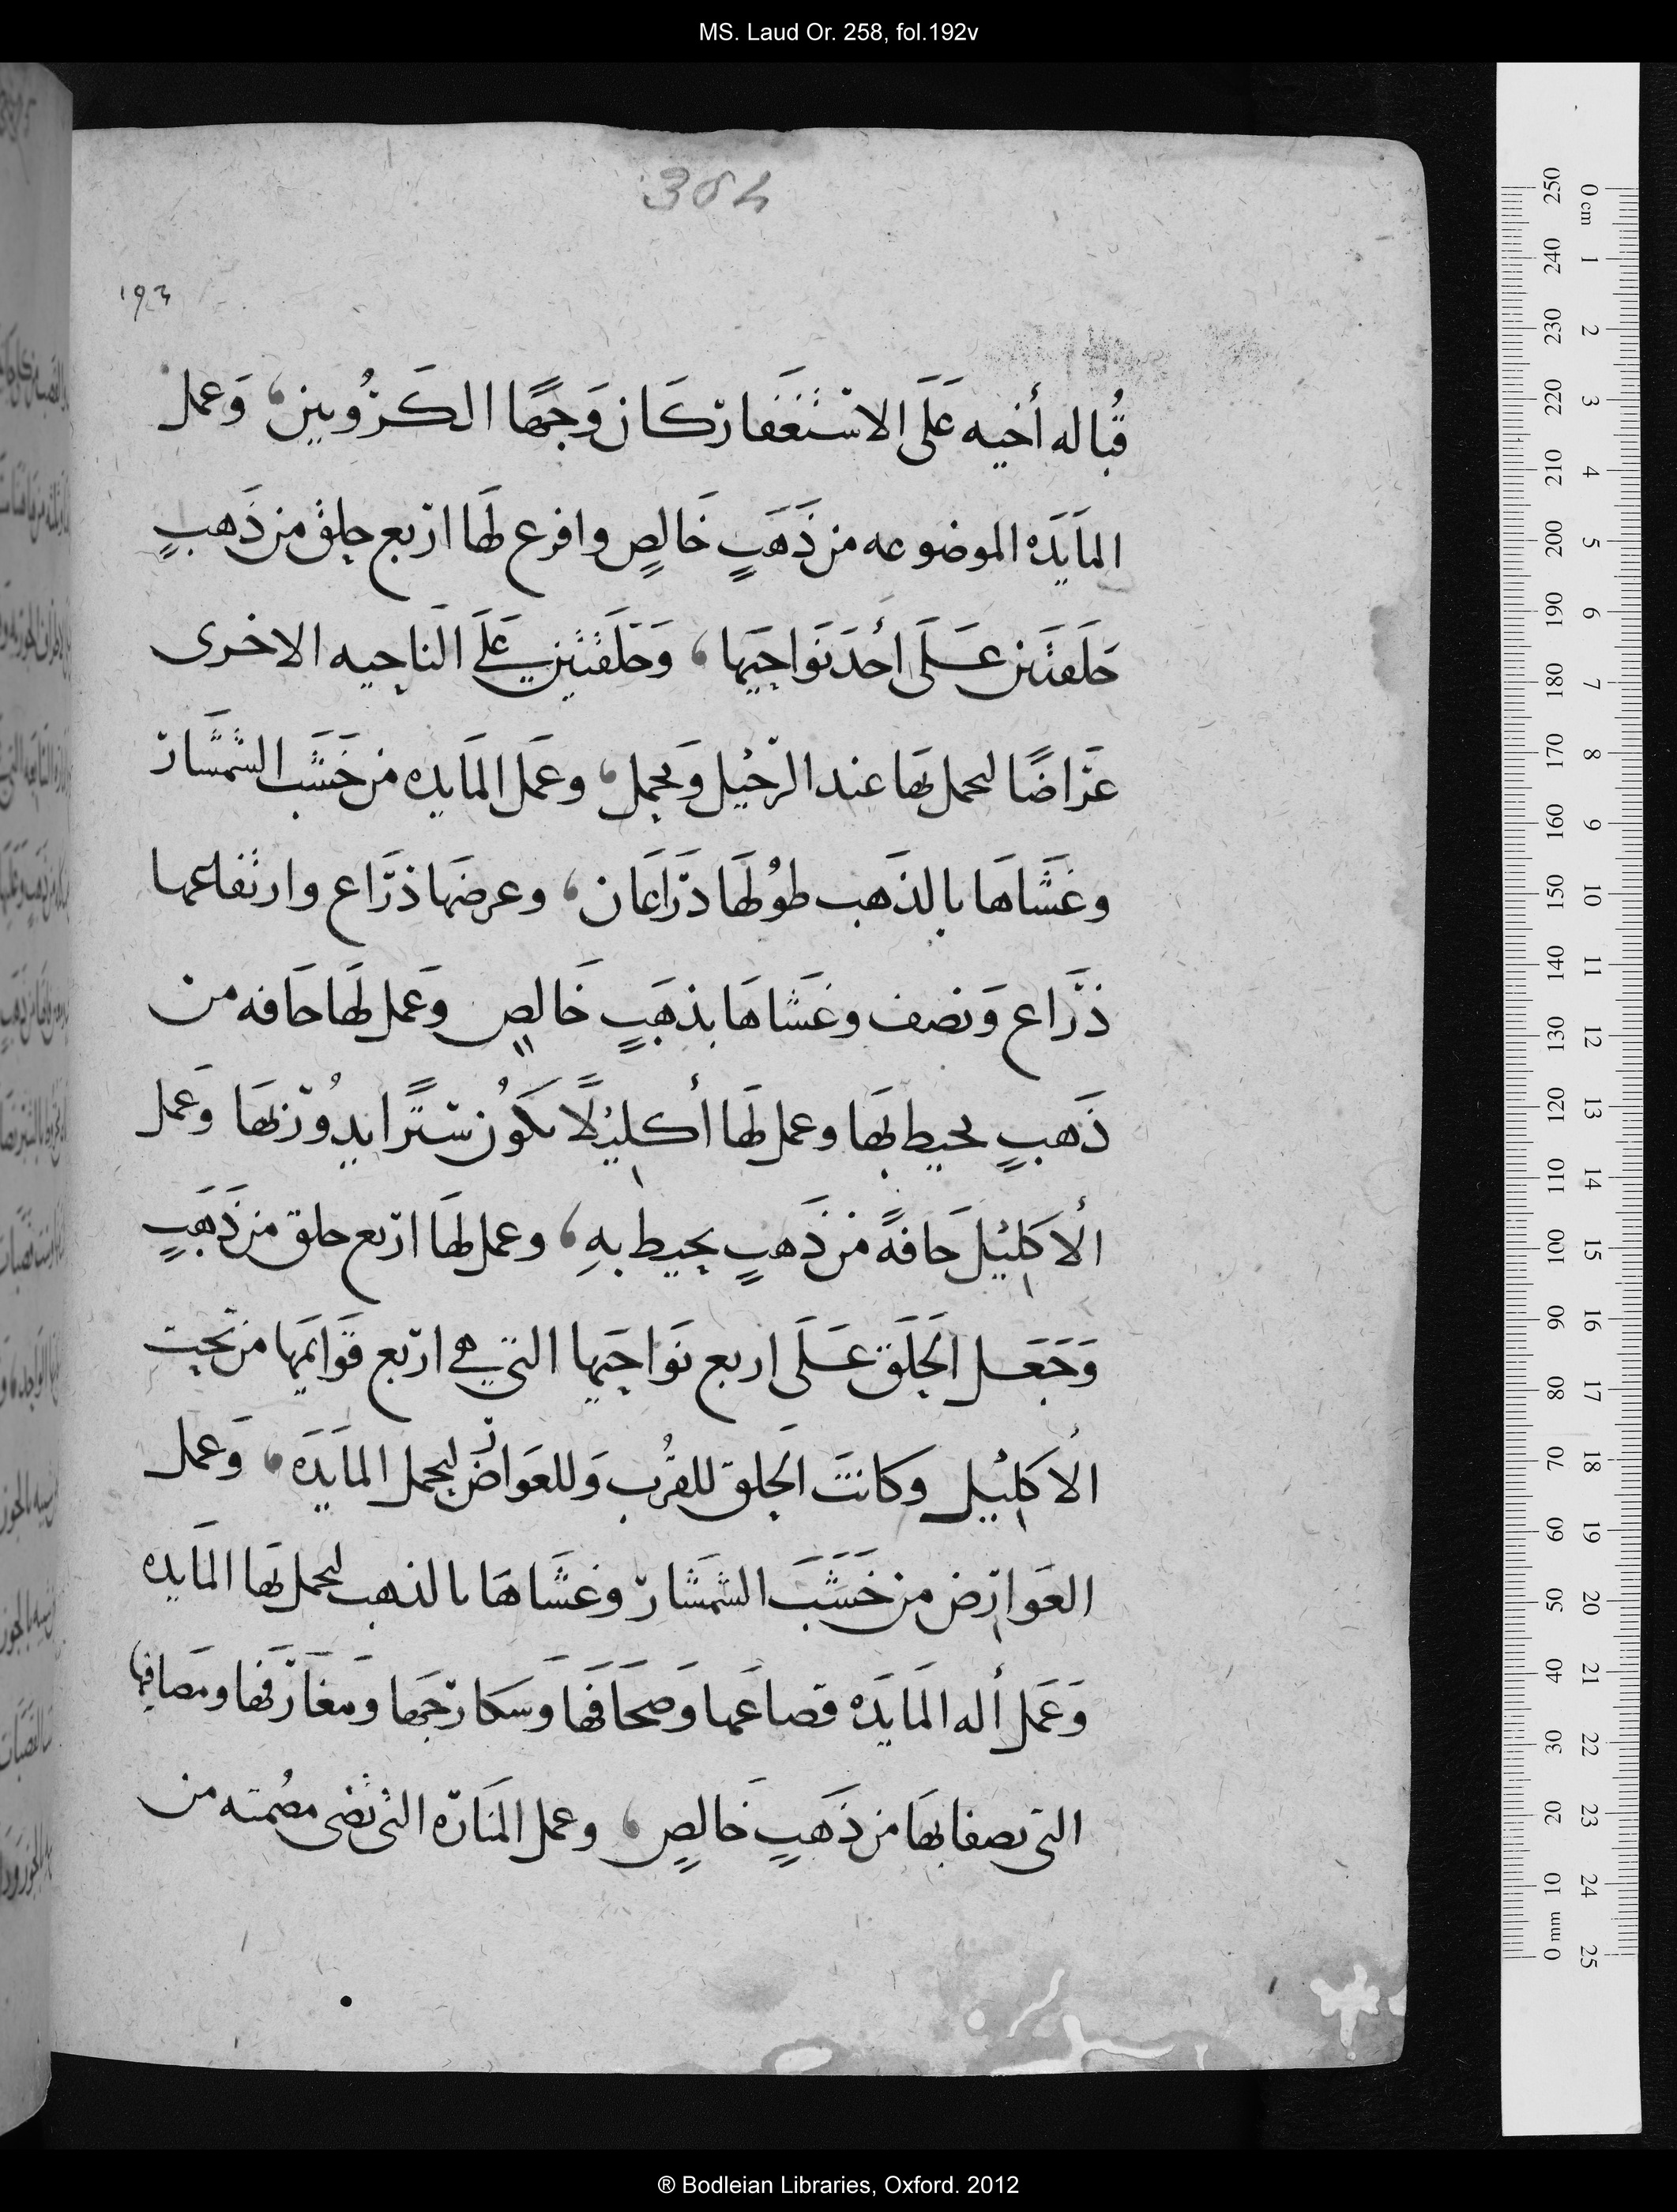 MS. Laud Or. 258, fol.192v
304
193
قُباله أخيه عَلَى الاسْتغَفار كَان وَجهًا الكَرُوبين، وَعمل
المَايَدَه الموضوعه من ذَهَبٍ خَالصٍ وافرع لهَا اربع حلق من ذَهبٍ
حَلَقتَين عَلَى أحَد نَواحيَها، وَحَلَقتين عَلَى الناحيه الاخرى
عَراضًا ليحمل بهَا عند الرحيل وَيحمل، وعَمل المَايده من خَشَب الشمشَار
وغَشَاهَا بالذَهب طوُلهَا ذَرَاعَان، وعرضَها ذرَاع وارتفاعها
ذرَاع وَنصف وغَشَاهَا بذهَبٍ خَالصٍ وعَمل لهَا حَافه من
ذَهبٍ يحيط بهَا وعمل لهَا أكليلًا يكَوُن سترًا يدوُر بهَا وعَمل
ألاكليل حَافةً من ذَهبٍ يحيط بهِ، وعمل لهَا اربع حلق من ذَهَبٍ
وَجَعَل الحَلَق عَلَى اربع نَواحيَها التي هي اربع قَوايمَها من تحت
ألاكليل وكانتَ الحَلق للقُرب وَللعَوارض ليحمل المايَدَه، وَعمل
العَوارض من خَشَبَ الشمشَار وغشَاهَا بالذهب ليحمل بهَا المَايده
وَعَمل أله المَايَدَه قصاعَها وَصحَافَهَا وَسَكارجَها وَمغَارفَها ومَصَافيها
التى يصفا بهَا من ذَهَبٍ خَالصٍ، وعمل المنَاره التى تضى مصُمته من
0 cm 1 2 3 4 5 6 7 8 9 10 11 12 13 14 15 16 17 18 19 20 21 22 23 24 25
250 240 230 220 210 200 190 180 170 160 150 140 130 120 110 100 90 80 70 60 50 40 30 20 10 0 mm
® Bodleian Libraries, Oxford. 2012